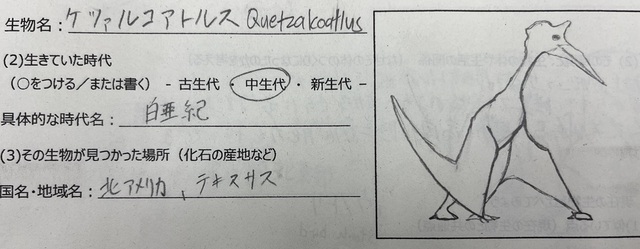 生物名：ケツァルコアトルス Quetzalcoatlus
(2)生きていた時代
（○をつける／または書く） - 古生代 ・ 中生代 ・ 新生代 -
具体的な時代名：白亜紀
(3)その生物が見つかった場所（化石の産地など）
国名・地域名：北アメリカ、テキサス